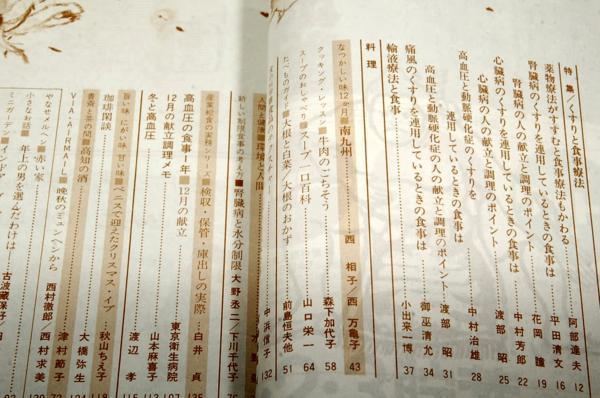 特集/くすりと食事療法
薬物療法がすすむと食事療法もかわる 阿部達夫 12
腎臓病のくすりを連用しているときの食事は 平田清文 16
腎臓病の人の献立と調理のポイント 花岡諭 19
心臓病のくすりを連用しているときの食事は 中村芳郎 22
心臓病の人の献立と調理のポイント 渡部昭 25
高血圧と動脈硬化症のくすりを
連用しているときの食事は 中村治雄 28
高血圧と動脈硬化症の人の献立と調理のポイント 渡部昭 31
痛風のくすりを連用しているときの食事は 御巫清允 34
輸液療法と食事 小出来一博 37
料理
なつかしい味12か月■南九州 西相子/西万亀子 43
クッキング・レッスン■牛肉のごちそう 森下加代子 58
スープのおしゃべり■スープ、一口百科 山口栄一 64
たべものガイド■大根と白菜/大根のおかず 前島恒夫他 51
中浜信子 132
人間と健康■環境と人間
新しい制限食事の考え方■腎臓病と水分制限 大野丞二/下川千代子 76
産業給食の実務シリーズ■検収・保管・庫出しの実際 白井貞
高血圧の食事1年■12月の献立 東京衛生病院 107
12月の献立調理メモ 山本麻喜子 113
冬と高血圧 渡辺孝 115
旨い味、にがい味、甘い味■ベニスで迎えたクリスマス・イブ 秋山ちえ子 118
珈琲閑談 大橋弥生 124
書斎と茶の間■高知の酒 津村節子
VIA・AIRMAIL■晩秋のミュンヘンから 西村徹郎/西村求美
やなせメルヘン■赤い家
小さなお話■年上の男を選んだわけは 古波蔵保好
ミニガーデン■